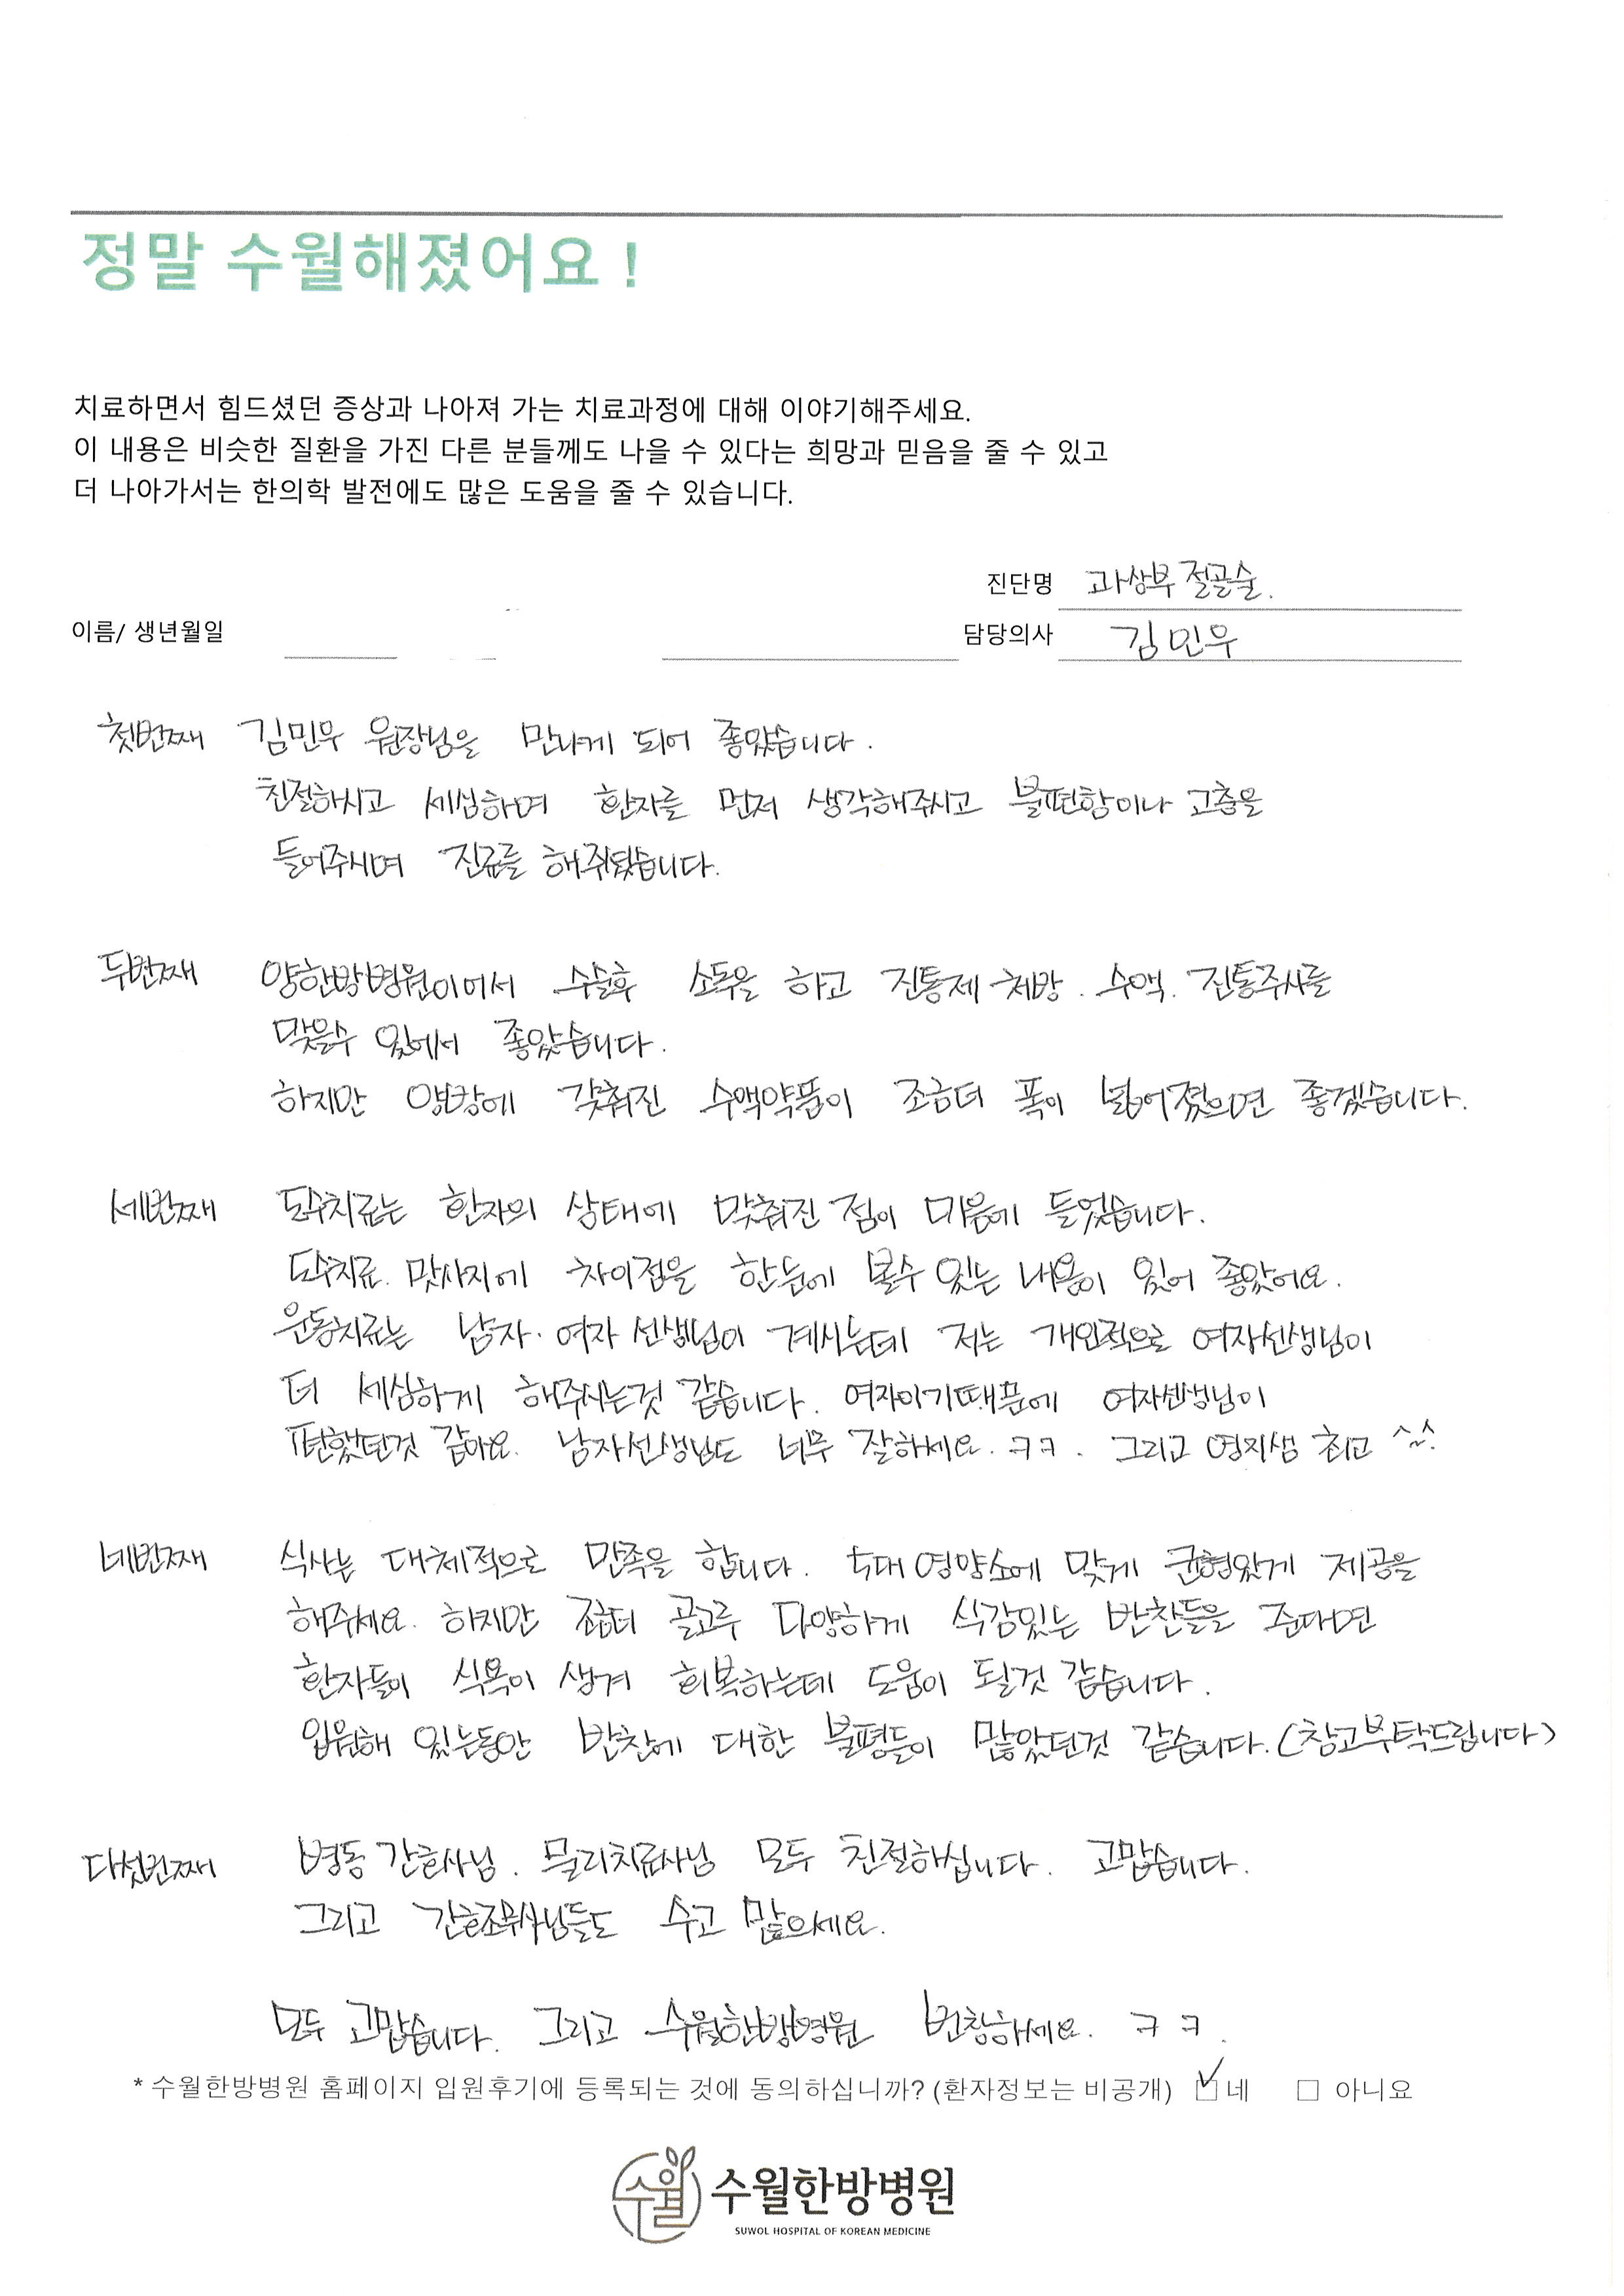 정말 수월해졌어요 !
치료하면서 힘드셨던 증상과 나아져 가는 치료과정에 대해 이야기해주세요.
이 내용은 비슷한 질환을 가진 다른 분들께도 나을 수 있다는 희망과 믿음을 줄 수 있고
더 나아가서는 한의학 발전에도 많은 도움을 줄 수 있습니다.
진단명 과상부 절골술.
이름/ 생년월일 담당의사 김민우
첫번째 김민우 원장님을 만나게 되어 좋았습니다.
친절하시고 세심하며 환자를 먼저 생각해주시고 불편함이나 고충을
들어주시며 진료를 해주셨습니다.
두번째 양한방병원이어서 수술후 소독을 하고 진통제 처방. 수액. 진통주사를
맞을수 있어서 좋았습니다.
하지만 양방에 갖춰진 수액약품이 조금더 폭이 넓어졌으면 좋겠습니다.
세번째 도수치료는 환자의 상태에 맞춰진 점이 마음에 들었습니다.
도수치료. 맛사지에 차이점을 한눈에 볼수 있는 내용이 있어 좋았어요.
운동치료는 남자. 여자 선생님이 계시는데 저는 개인적으로 여자선생님이
더 세심하게 해주시는것 같습니다. 여자이기때문에 여자선생님이
편했던것 같아요. 남자선생님도 너무 잘하세요. ㅋㅋ. 그리고 영지샘 최고 ^~^.
네번째 식사는 대체적으로 만족을 합니다. 5대 영양소에 맞게 균형있게 제공을
해주세요. 하지만 조금더 골고루 다양하게 식감있는 반찬들을 준다면
환자들이 식욕이 생겨 회복하는데 도움이 될것 같습니다.
입원해 있는동안 반찬에 대한 불평들이 많았던것 같습니다. (참고부탁드립니다)
다섯번째 병동 간호사님. 물리치료사님 모두 친절하십니다. 고맙습니다.
그리고 간호조무사님들도 수고 많으세요.
모두 고맙습니다. 그리고 수월한방병원 번창하세요. ㅋㅋ.
* 수월한방병원 홈페이지 입원후기에 등록되는 것에 동의하십니까? (환자정보는 비공개) ☑ 네 □ 아니요
수월 수월한방병원
SUWOL HOSPITAL OF KOREAN MEDICINE